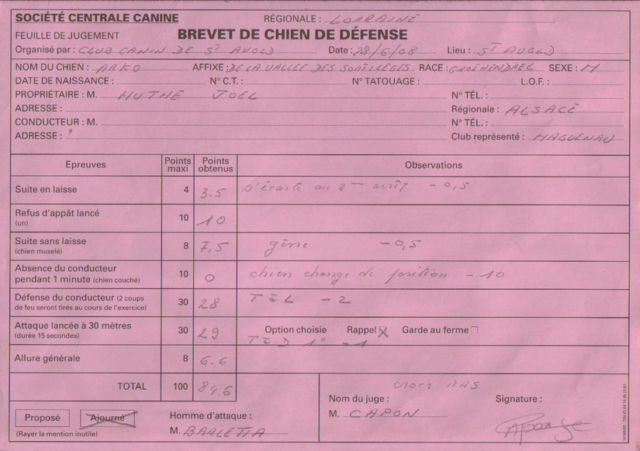 SOCIÉTÉ CENTRALE CANINE RÉGIONALE : LORRAINE
FEUILLE DE JUGEMENT BREVET DE CHIEN DE DÉFENSE
Organisé par : CLUB CANIN DE ST AVOLD Date : 28/6/08 Lieu : ST AVOLD
NOM DU CHIEN : ARKO AFFIXE DE LA VALLEE DES SORTILEGES RACE : GROENENDAEL SEXE : M
DATE DE NAISSANCE : N° C.T. : N° TATOUAGE : L.O.F. :
PROPRIÉTAIRE : M. HUTHE JOEL N° TÉL. :
ADRESSE : Régionale : ALSACE
CONDUCTEUR : M. N° TÉL. :
ADRESSE : Club représenté : HAGUENAU
Epreuves Points maxi Points obtenus Observations
Suite en laisse 4 3.5 s'écarte au 2me arrêt - 0,5
Refus d'appât lancé (un) 10 10
Suite sans laisse (chien muselé) 8 7,5 gêne - 0,5
Absence du conducteur pendant 1 minute (chien couché) 10 0 chien change de position - 10
Défense du conducteur (2 coups de feu seront tirés au cours de l'exercice) 30 28 TEL - 2
Attaque lancée à 30 mètres (durée 15 secondes) 30 29 Option choisie Rappel X Garde au ferme
TED 1° - 1
Allure générale 8 6.6
TOTAL 100 84.6
Nom du juge : Signature :
M. CAPON
Proposé Ajourné Homme d'attaque :
(Rayer la mention inutile) M. BARLETTA